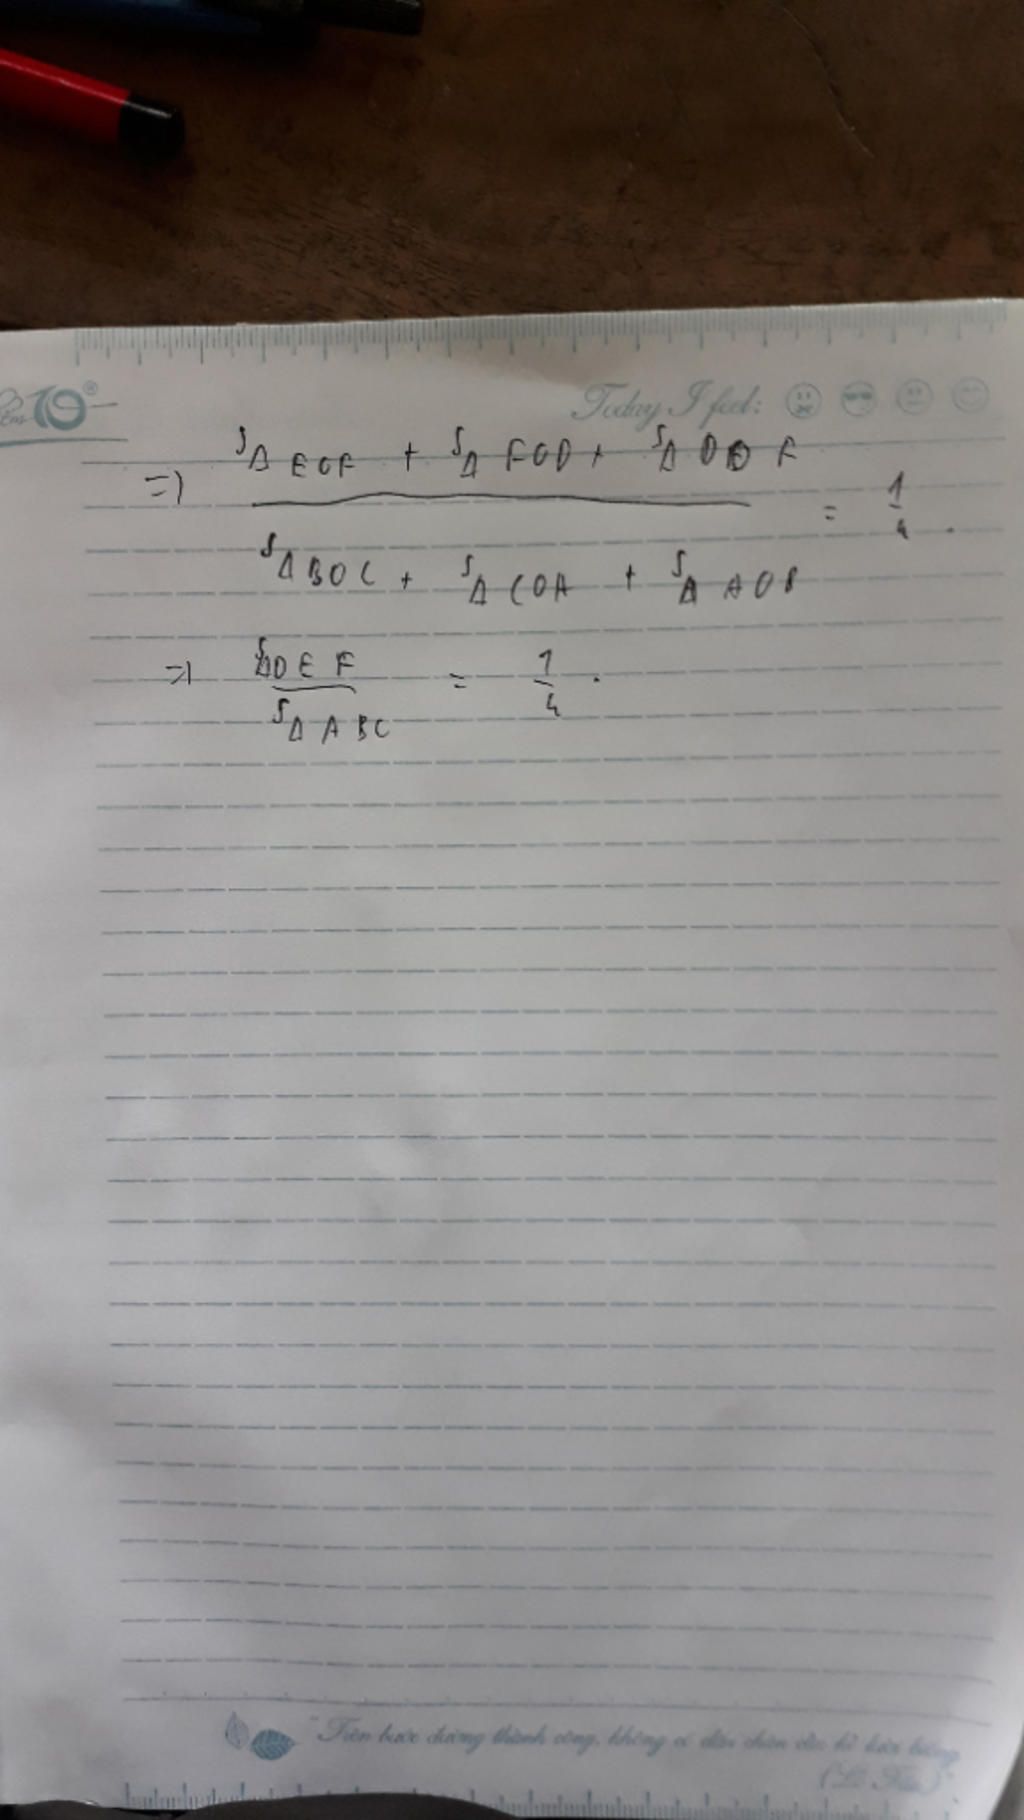 10®
Today I feel:
=> SΔ EOF + SΔ FOD + SΔ DOF
SΔ BOC + SΔ COA + SΔ AOB = 1/4.
=> SΔDEF / SΔ ABC = 1/4.
"Trên bước đường thành công, không có dấu chân của kẻ lười biếng